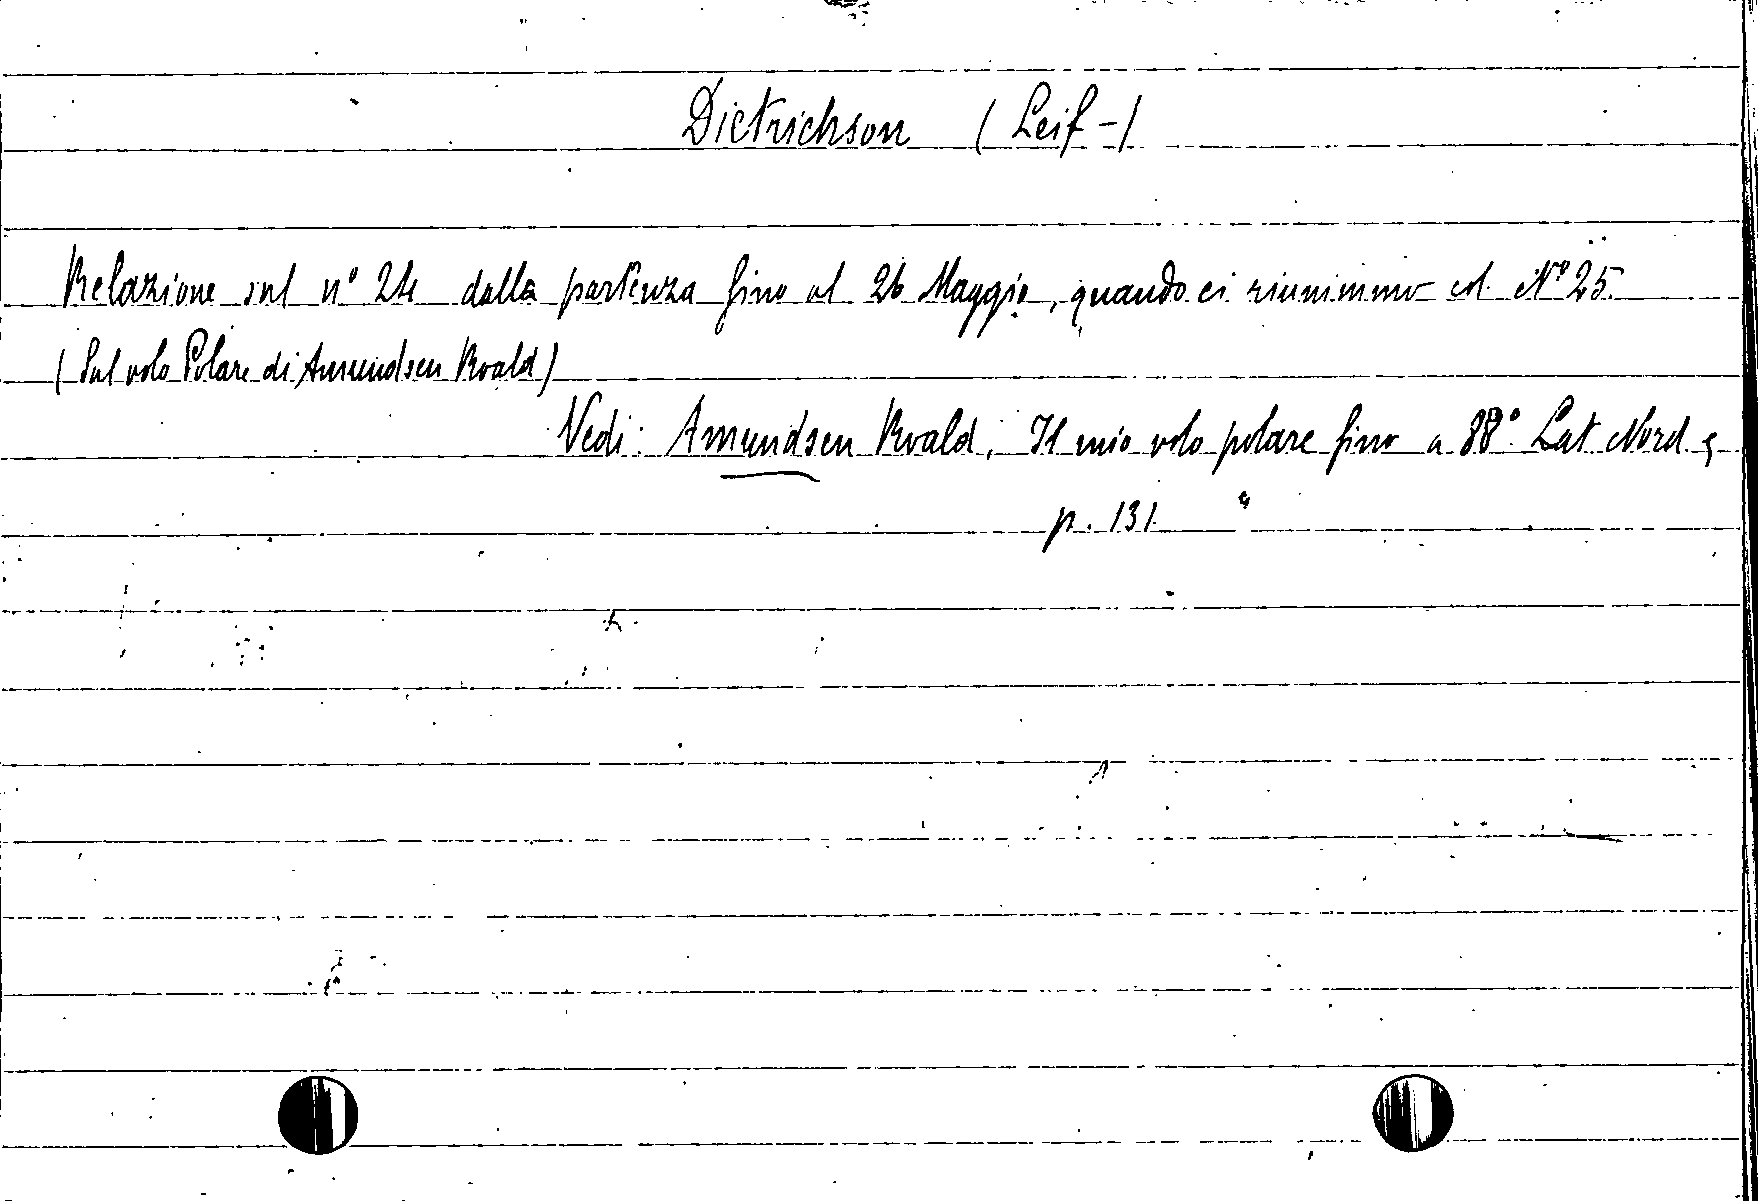 Dietrichson (Leif-)
Relazione sul n° 24 dalla partenza fino al 26 Maggio, quando ci riunimmo col N° 25.
(Sul volo Polare di Amundsen Roald)
Vedi: Amundsen Roald, Il mio volo polare fino a 88° Lat Nord,
p. 131